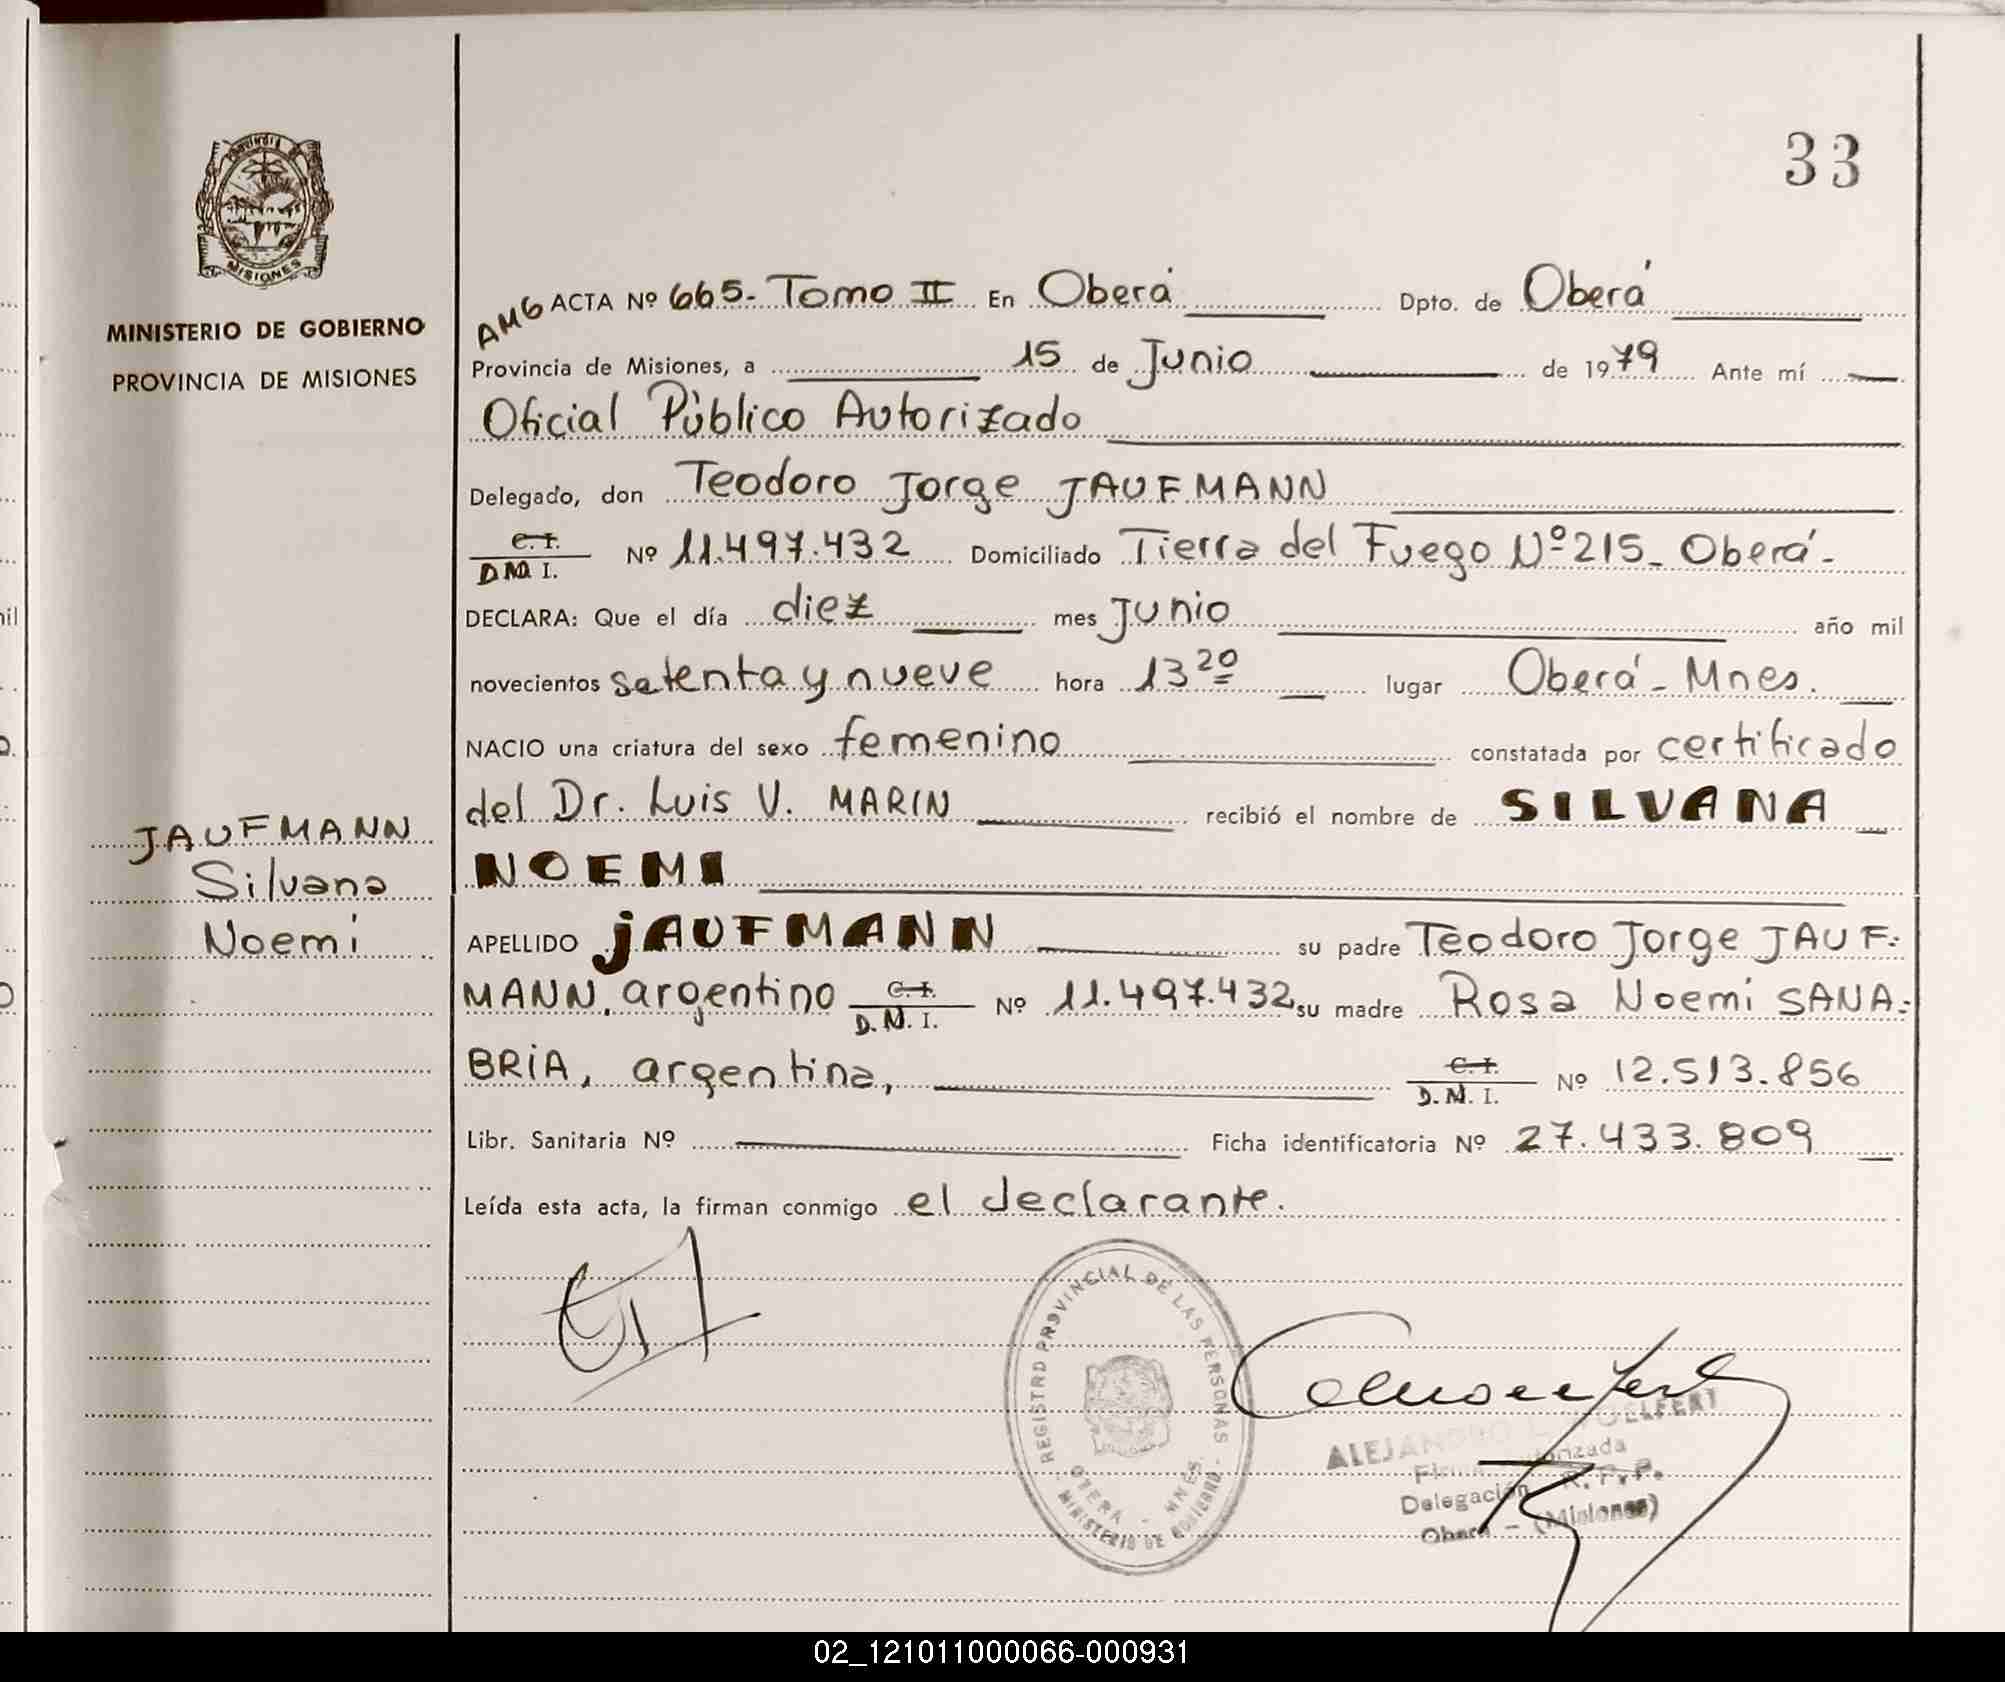 33
Provincia de
MISIONES
MINISTERIO DE GOBIERNO
PROVINCIA DE MISIONES
AMG ACTA Nº 665- Tomo II En Oberá Dpto. de Oberá
Provincia de Misiones, a 15 de Junio de 1979 Ante mí
Oficial Público Autorizado
Delegado, don Teodoro Jorge JAUFMANN
C.I. D.N.I. Nº 11.497.432 Domiciliado Tierra del Fuego Nº 215_ Oberá-
DECLARA: Que el día diez mes Junio año mil
novecientos setenta y nueve hora 13 20 lugar Oberá - Mnes.
NACIO una criatura del sexo femenino constatada por certificado
del Dr. Luis V. MARIN recibió el nombre de SILVANA
NOEMI
JAUFMANN
Silvana
Noemi
APELLIDO JAUFMANN su padre Teodoro Jorge JAUF-
MANN, argentino C.I. D.N.I. Nº 11.497.432 su madre Rosa Noemi SANA-
BRIA, argentina, C.I. D.N.I. Nº 12.513.856
Libr. Sanitaria Nº Ficha identificatoria Nº 27.433.809
Leída esta acta, la firman conmigo el declarante.
REGISTRO PROVINCIAL DE LAS PERSONAS
OBERA - MNES
MINISTERIO DE GOBIERNO
ALEJANDRO
Firma Autorizada
Delegación R. P. P.
Oberá - (Misiones)
02_121011000066-000931